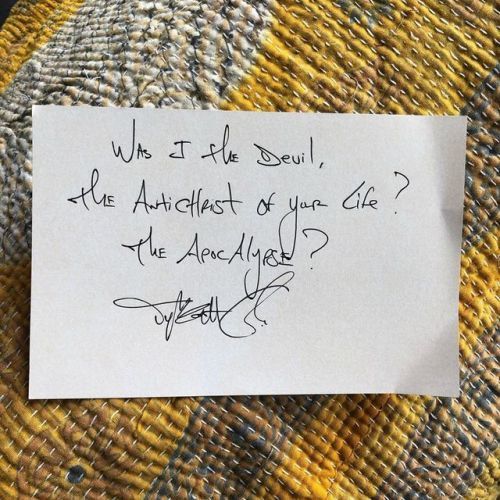 Was I the Devil,
the Antichrist of your life?
The Apocalypse?